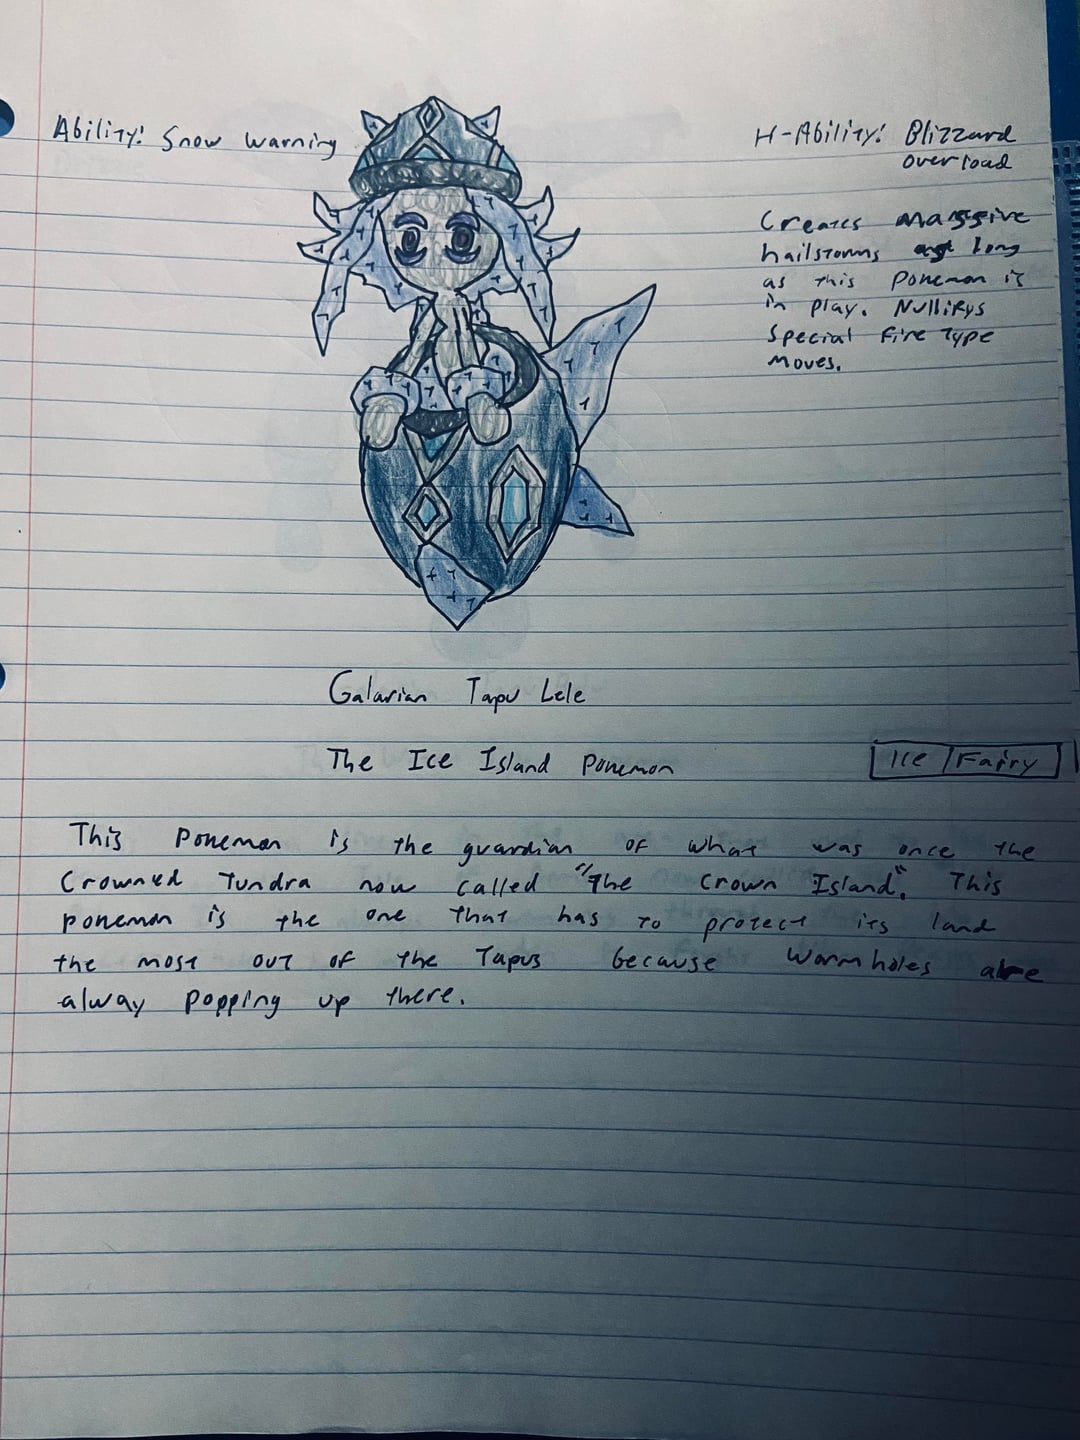 Ability: Snow Warning
H-Ability: Blizzard
overload
Creates massive
hailstorms as long
as this Ponemon is
in play. Nullifys
Special Fire Type
Moves.
Galarian Tapu Lele
The Ice Island Ponemon
Ice Fairy
This Ponemon is the guardian of what was once the
Crowned Tundra now called "The Crown Island". This
ponemon is the one that has to protect its land
the most out of the Tapus because Wormholes are
alway popping up there.